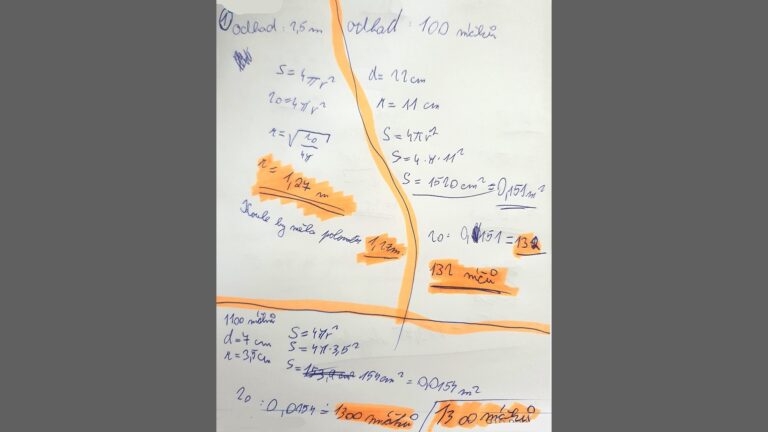 1
odhad: 2,5 m
S = 4πr²
20 = 4πr²
r = √20/4π
r = 1,27 m
Koule by měla poloměr 1,27m.
odhad: 100 míčků
d = 22 cm
r = 11 cm
S = 4πr²
S = 4·π·11²
S = 1520 cm² = 0,151 m²
20 : 0,151 = 132
132 míčů
1100 míčků
d = 7 cm
r = 3,5 cm
S = 4πr²
S = 4π·3,5²
S = 154 cm² = 0,0154 m²
20 : 0,0154 = 1300 míčků
1300 míčků